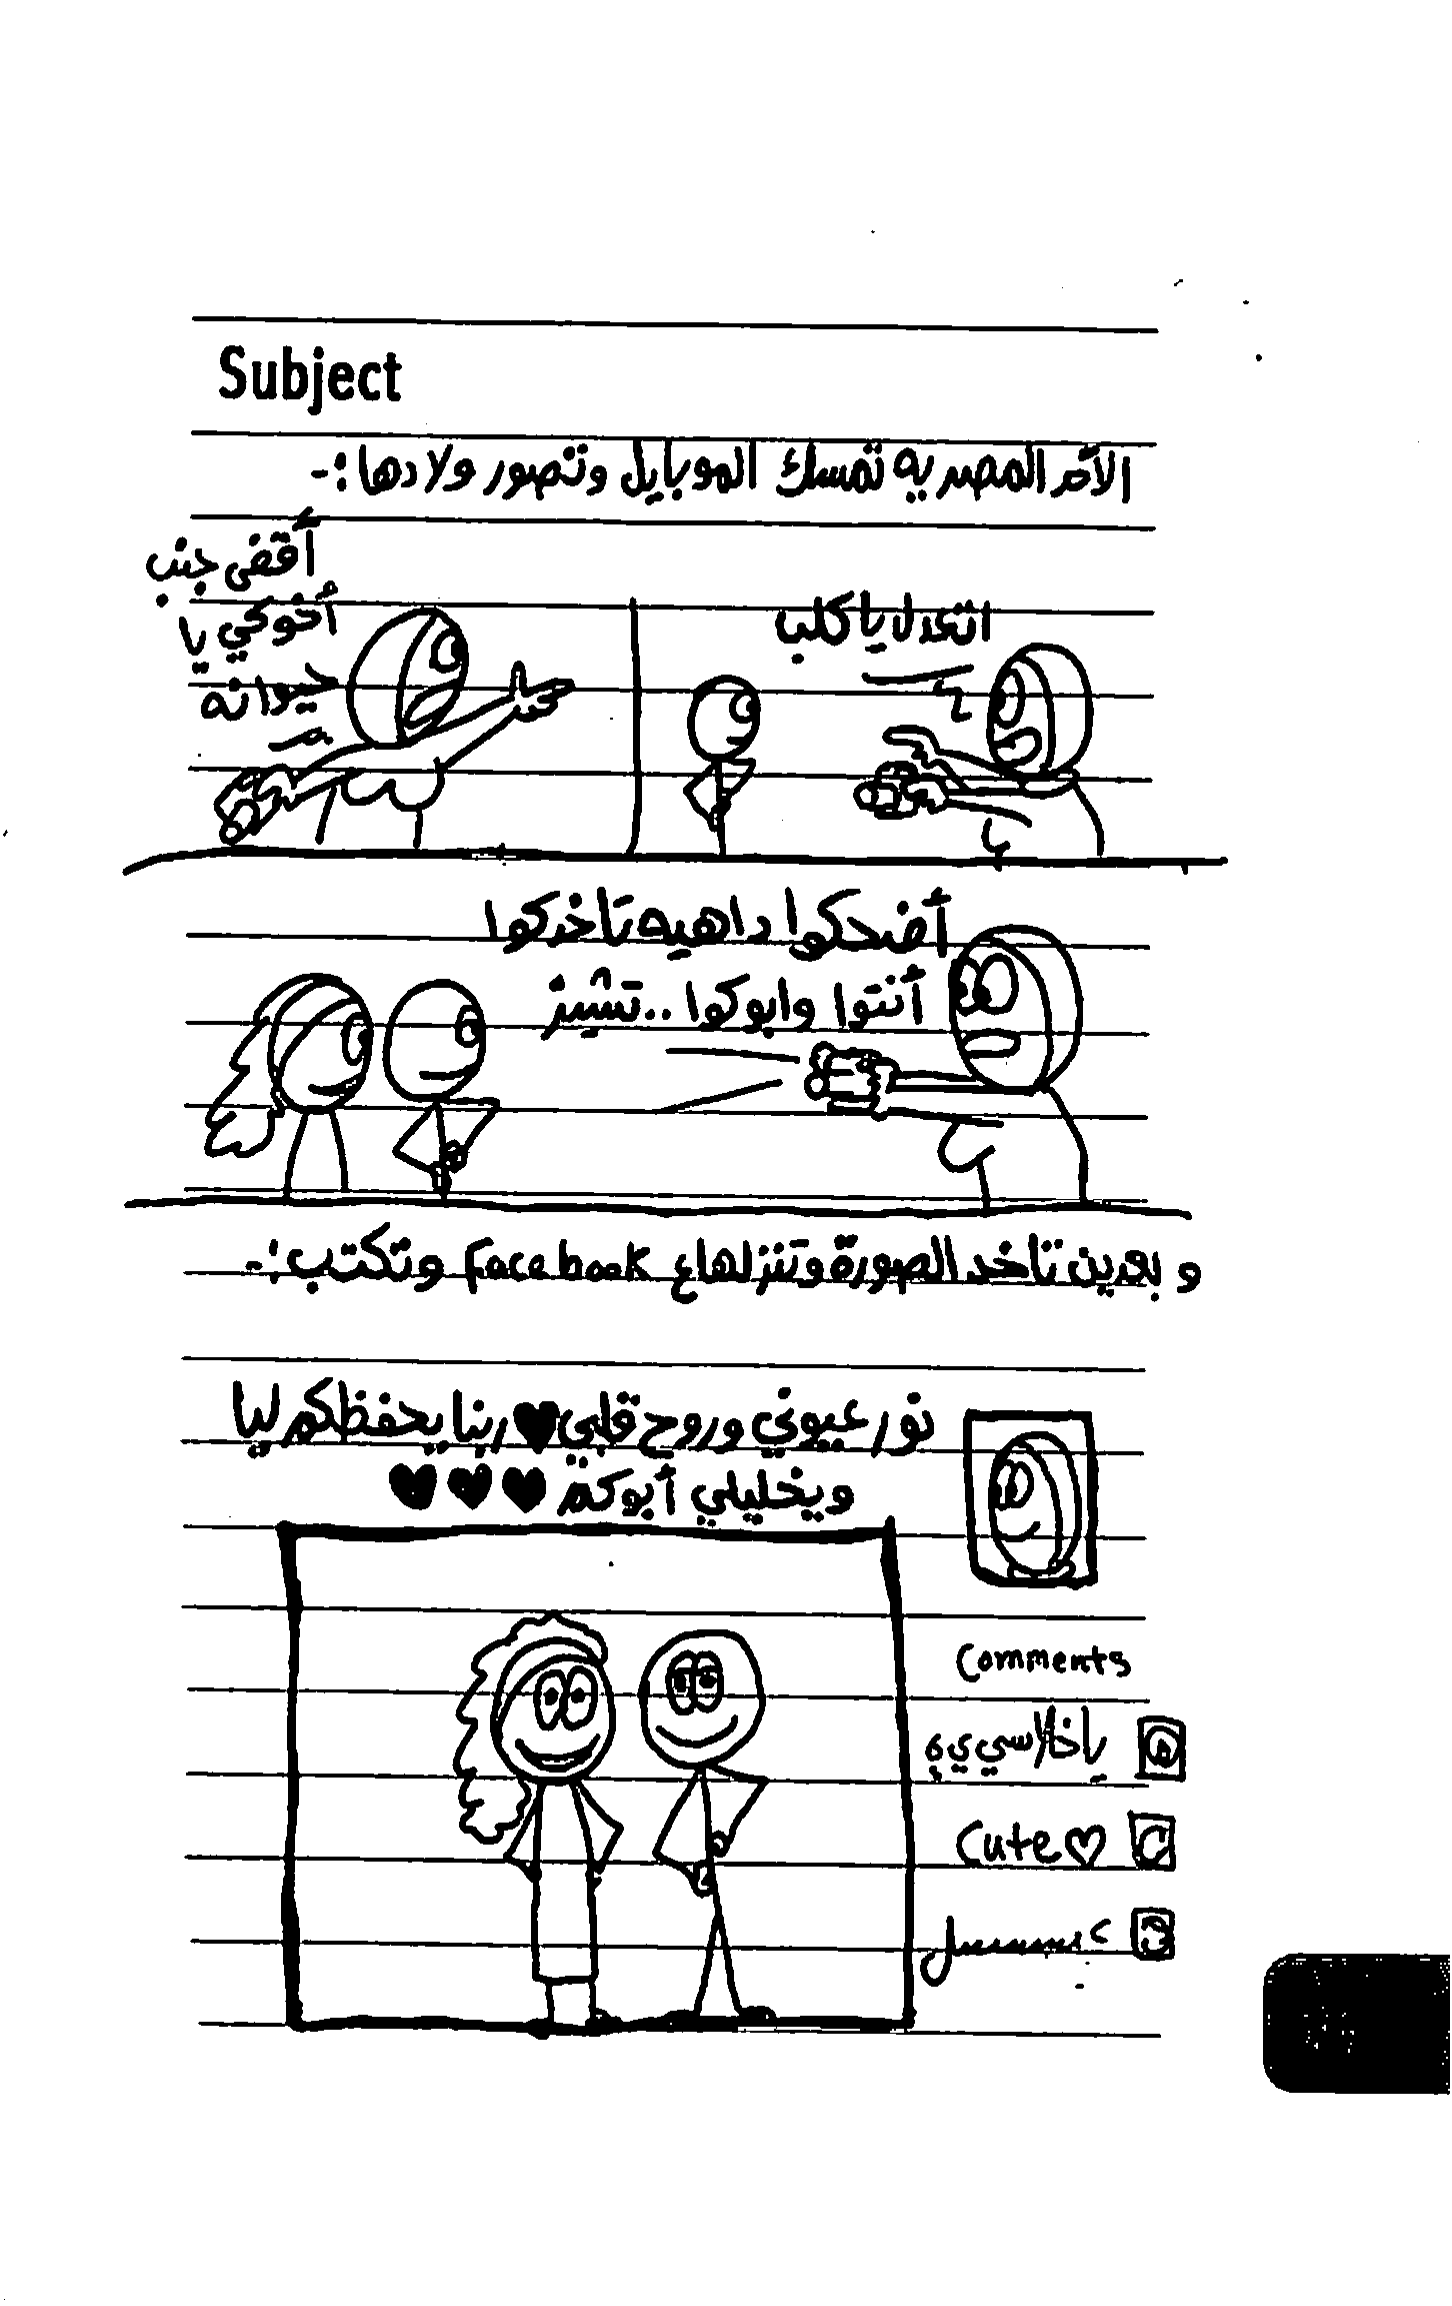 Subject
الأم المصريه تمسك الموبايل وتصور ولادها :-
اتعدل يا كلب
أقفى جنب
أخوكي يا
حيوانه
أضحكوا داهيه تاخدكوا
أنتوا وابوكوا .. تشييز
وبعدين تاخد الصورة وتنزلها ع Facebook وتكتب :-
نور عيوني وروح قلبي ♥ ربنا يحفظكم ليا
ويخليلي أبوكم ♥ ♥ ♥
Comments
ياخلاسي يي و
Cute ♡